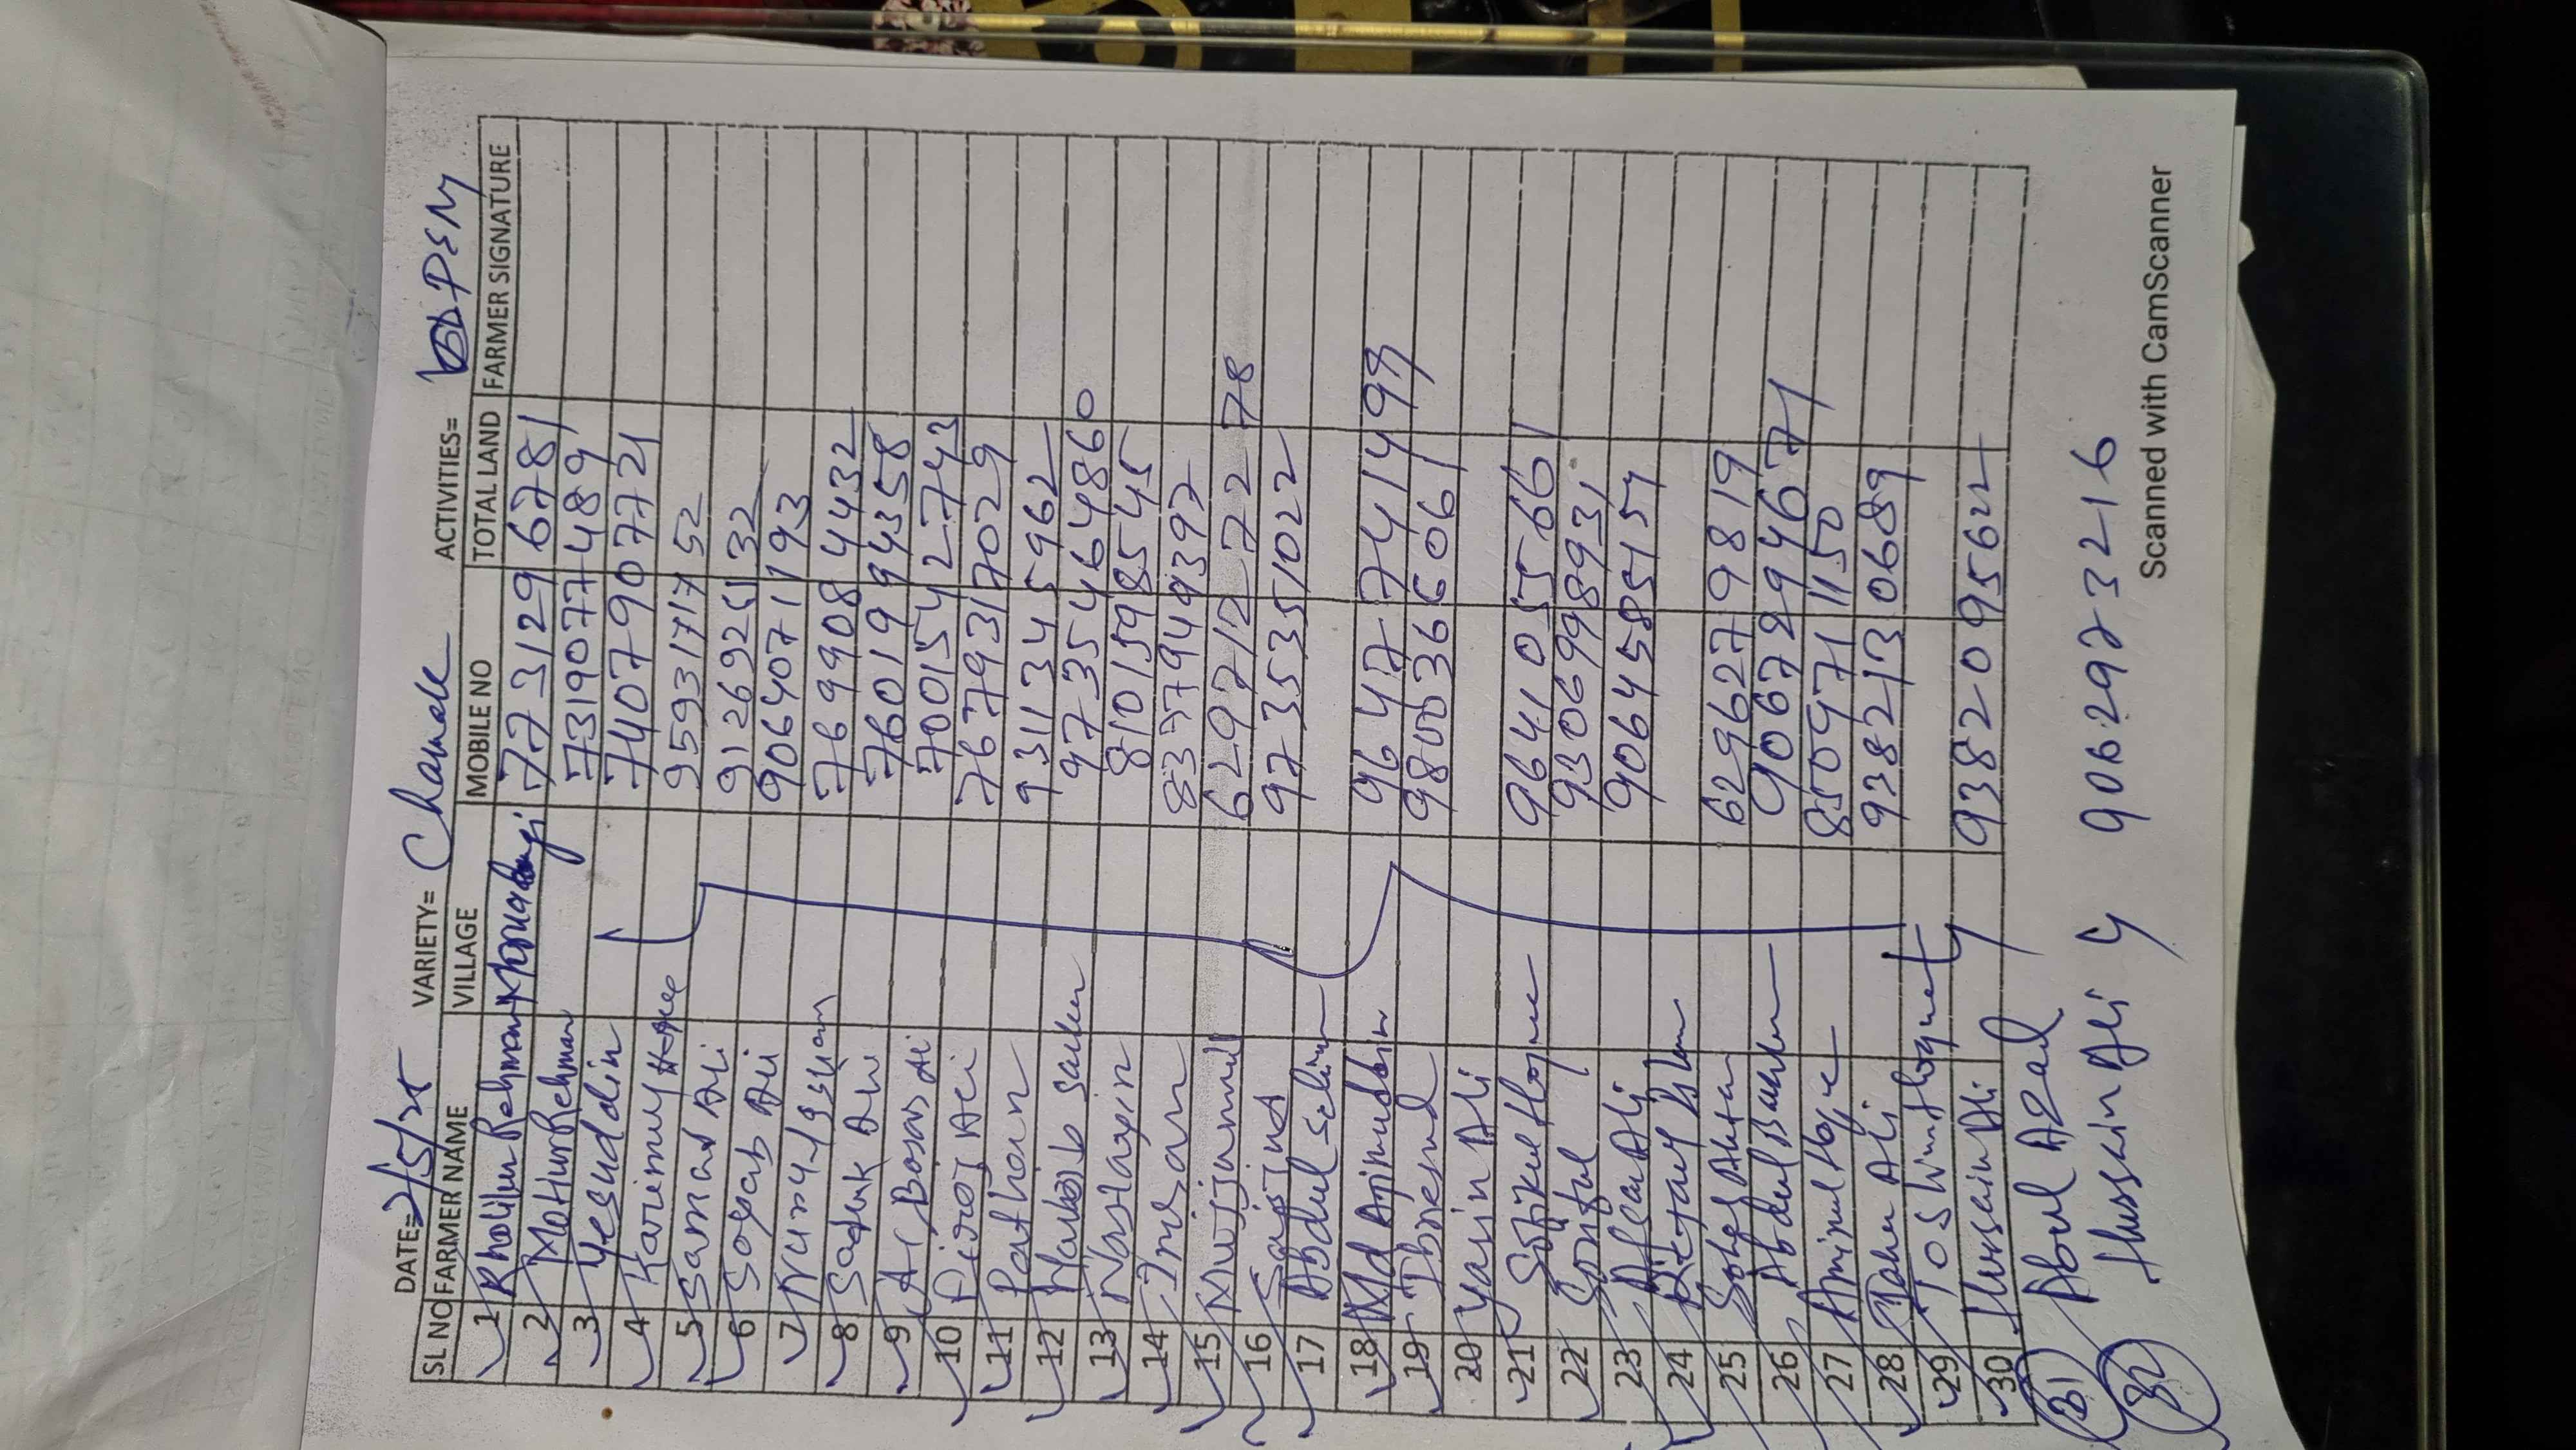 DATE= 2/5/25 VARIETY= Chamak ACTIVITIES= OPSM
SL NO FARMER NAME VILLAGE MOBILE NO TOTAL LAND FARMER SIGNATURE
1 Kholilur Rehman 7731296781
2 Motiur Rehman 7319077489
3 Yesuddin 7407907721
4 Karimul 9593171752
5 Samad Ali 9126926132
6 Soyeb Ali 9064071193
7 Nurul Islam 7699084432
8 Sadek Ali 7601994358
9 Ali 7001542743
10 Firoj Ali 7679317029
11 Pathan 9311345962
12 Sarker 9735464860
13 8101598545
14 Imran 8377949397
15 Mirijanul 6297127278
16 9735351022
17 Abdul Selim
18 Md Ajimuddin 9647741499
19 9800366061
20 Yasin Ali
21 Sofikul Hoque 9641055661
22 9306998931
23 Afsar Ali 9064585157
24
25 Sohel Aktar 6296279819
26 Abdul 9067294671
27 Aminul Hoque 8509711150
28 Taher Ali 9382130689
29 Hoque
30 Hussain Ali 9382095622
31 Abul Azad
32 Hussain Ali 9062973216
Scanned with CamScanner